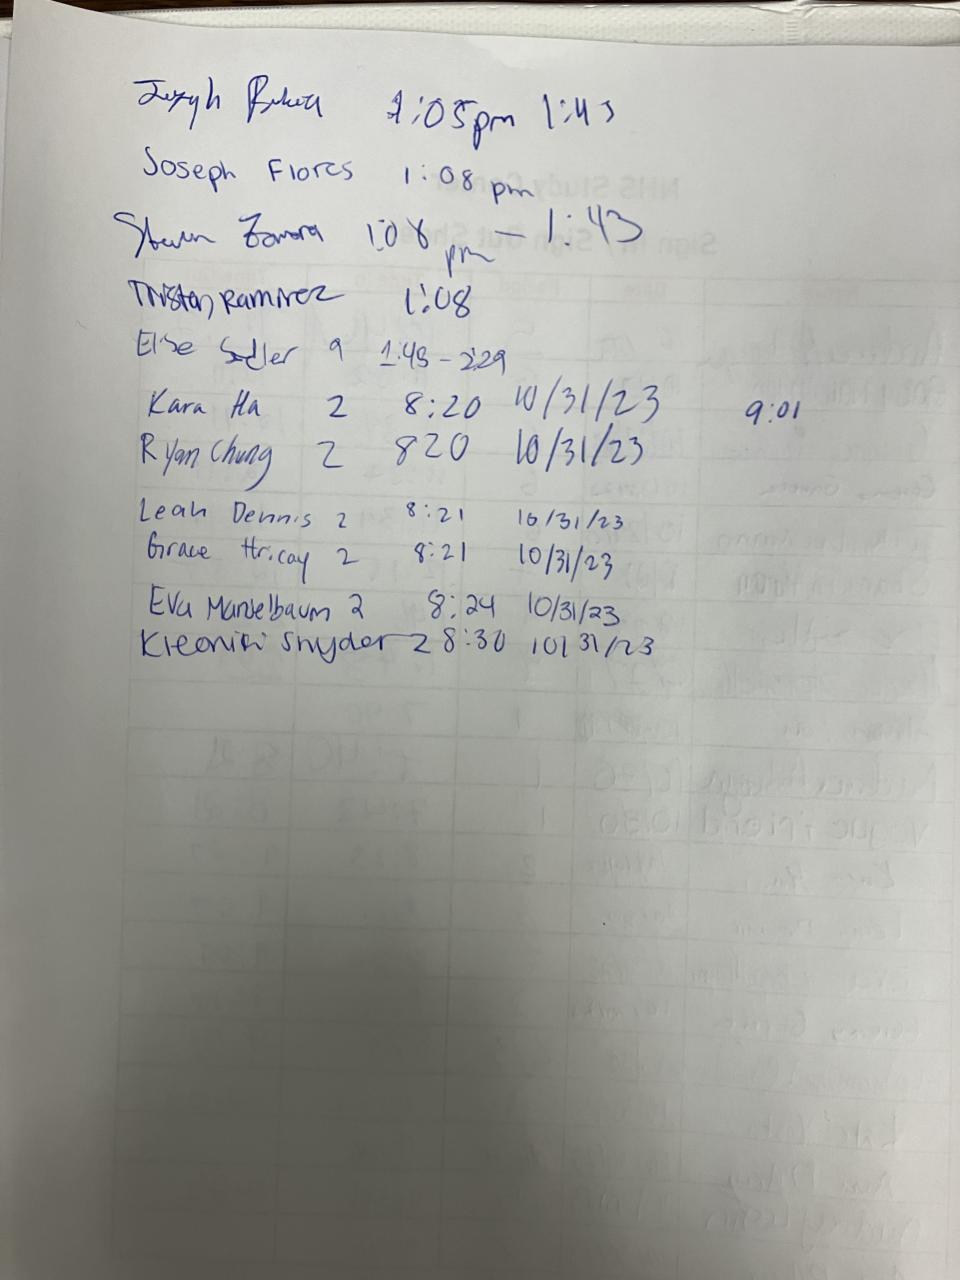 Joseph 1:05pm 1:43
Joseph Flores 1:08 pm
Steven Zamora 1:08 pm - 1:43
Tristan Ramirez 1:08
Else Sadler 9 1:43 - 2:29
Kara Ha 2 8:20 10/31/23 9:01
Ryan Chung 2 820 10/31/23
Leah Dennis 2 8:21 10/31/23
Grace Hricay 2 8:21 10/31/23
Eva Mandelbaum 2 8:24 10/31/23
Kleoniki Snyder 2 8:30 10/31/23